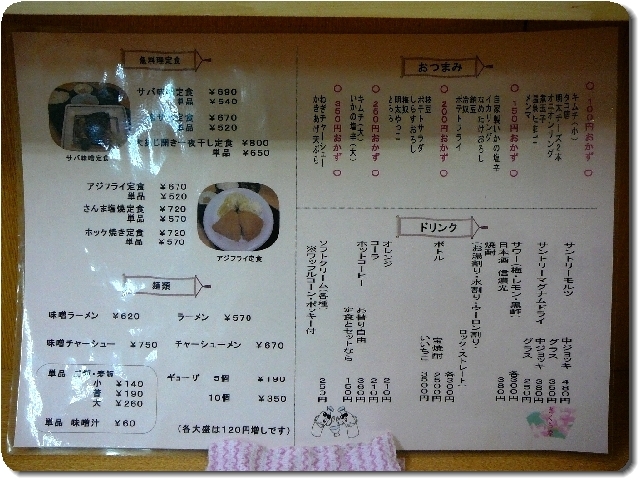 魚料理定食
サバ味噌定食 ¥690
単品 ¥540
¥670
¥520
開き一夜干し定食 ¥800
単品 ¥650
サバ味噌定食
アジフライ定食 ¥670
単品 ¥520
さんま塩焼定食 ¥720
単品 ¥570
ホッケ焼き定食 ¥720
単品 ¥570
アジフライ定食
麺類
味噌ラーメン ¥620
ラーメン ¥570
味噌チャーシュー ¥750
チャーシューメン ¥670
単品
小 ¥140
¥190
大 ¥260
単品 味噌汁 ¥60
ギョーザ 5個 ¥190
10個 ¥350
(各大盛は120円増しです)
おつまみ
○ 100円おかず ○
キムチ(小)
タコ唐
明太チーズ2本
オニオンリング
煮玉子
温泉たまご
メンマ
○ 150円おかず ○
自家製いかの塩辛
イカリング
なめたけおろし
納豆
ポテトフライ
○ 200円おかず ○
枝豆
ポテトサラダ
しらすおろし
梅奴
明太やっこ
とろろ
○ 250円おかず ○
キムチ(大)
いかの塩辛(大)
○ 350円おかず ○
ねぎチャーシュー
かきあげ天ぷら
ドリンク
サントリーモルツ 中ジョッキ 480円
グラス 350円
サントリーマグナムドライ 中ジョッキ 380円
グラス 250円
サワー(梅・レモン・巨峰) 各300円
日本酒 信濃光 300円
焼酎
(お湯割り・水割り・ウーロン割り・ロック・ストレート) 各300円
ボトル 宝焼酎 2500円
いいちこ 3500円
オレンジ 210円
コーラ 210円
ホットコーヒー お替り自由 360円
定食とセットなら 100円
ソフトクリーム(各種) 250円
※ワッフルコーン・ポッキー付